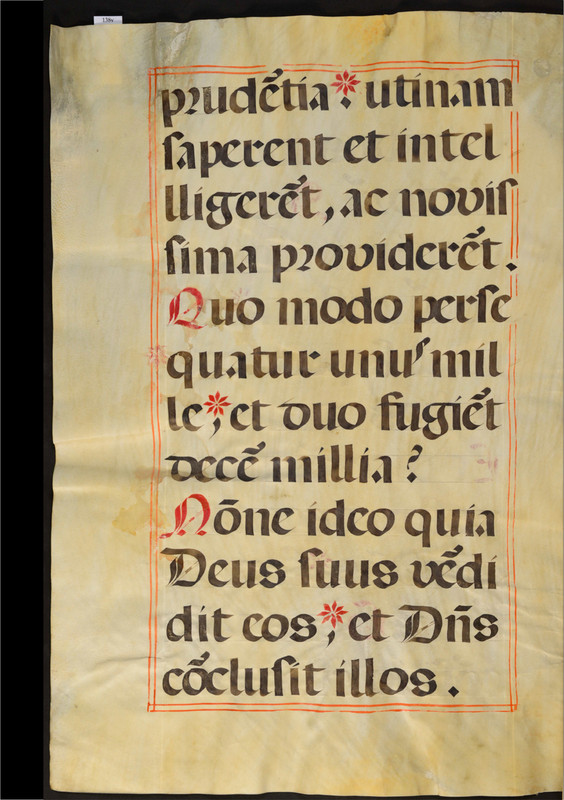 138v
prudẽtia * : utinam
ſaperent et intel
lligerẽt, ac noviſ
ſima providerẽt.
Quo modo perſe
quatur unuſ mil
le * ; et duo fugiẽt
decẽ millia ?
Nõne ideo quia
Deus ſuus vẽdi
dit eos * ; et Dñs
cõcluſit illos .